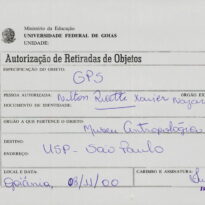 Ministério da Educação
UNIVERSIDADE FEDERAL DE GOIÁS
UNIDADE:
Autorização de Retiradas de Objetos
ESPECIFICAÇÃO DO OBJETO:
GPS
PESSOA AUTORIZADA: Nilton Ricetti Xavier Nazar
DOCUMENTO DE IDENTIDADE:
ORGÃO A QUE PERTENCE O OBJETO:
Museu Antropológico
DESTINO:
ENDEREÇO: USP - São Paulo
LOCAL E DATA: CARIMBO E ASSINATURA:
Goiânia, 08/11/00